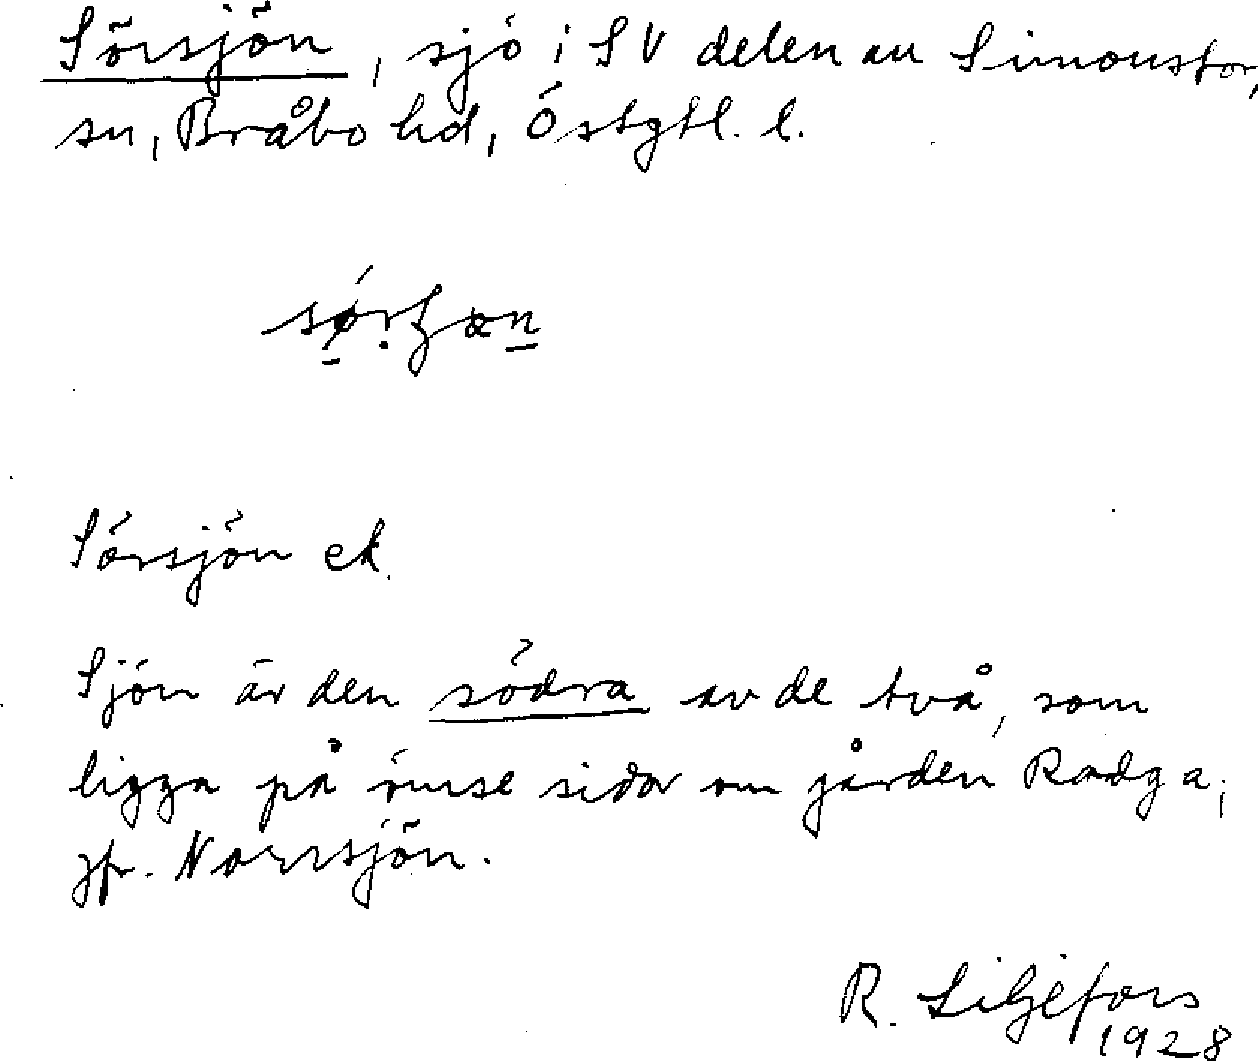 Sörsjön, sjö i SV delen av Simonstor,
sn, Bråbo hd, Östgtl. l.
Sörsjön ek.
Sjön är den södra av de två, som
ligga på ömse sidor om gården Rodga;
jfr. Norrsjön.
R. Liljefors
1928